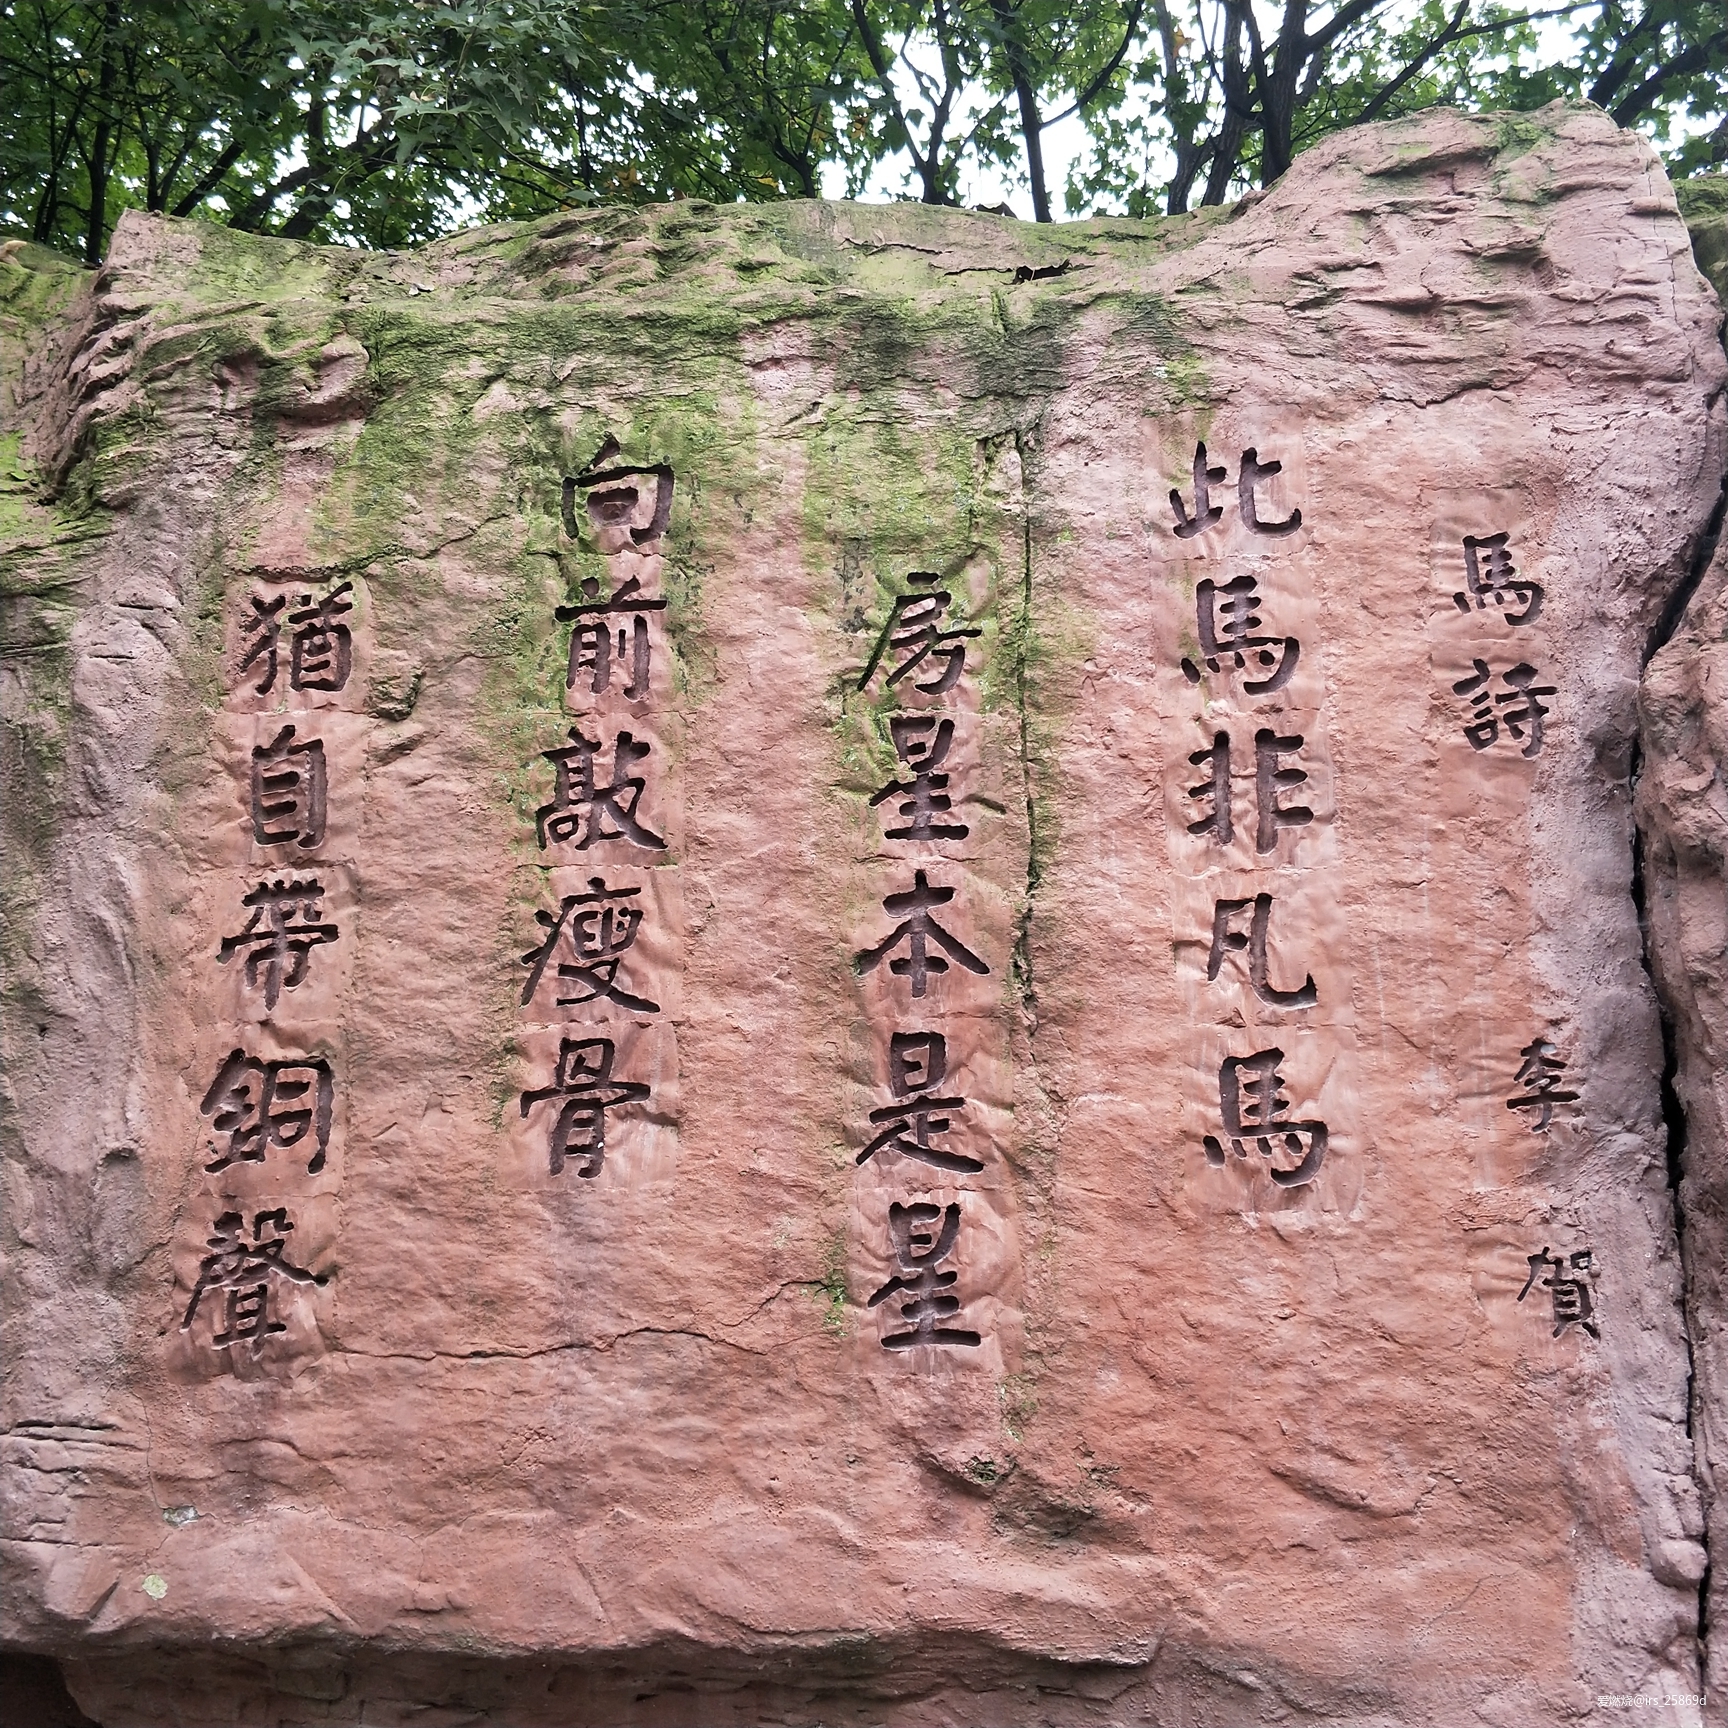 馬詩 李賀
此馬非凡馬
房星本是星
向前敲瘦骨
猶自帶銅聲
爱燃烧@irs_25869d